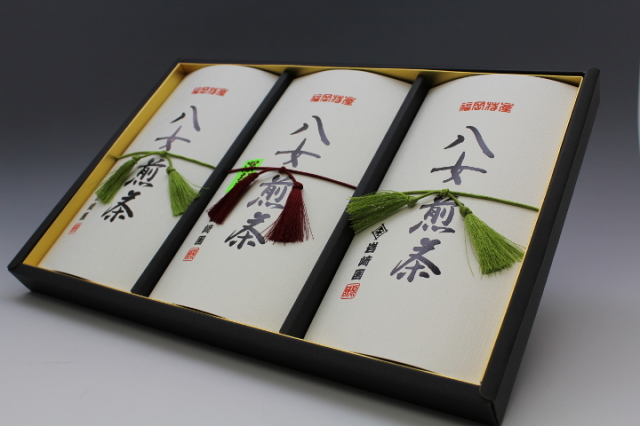 福岡特産
八女煎茶
福岡特産
八女煎茶
崎園
福岡特産
八女煎茶
崎園